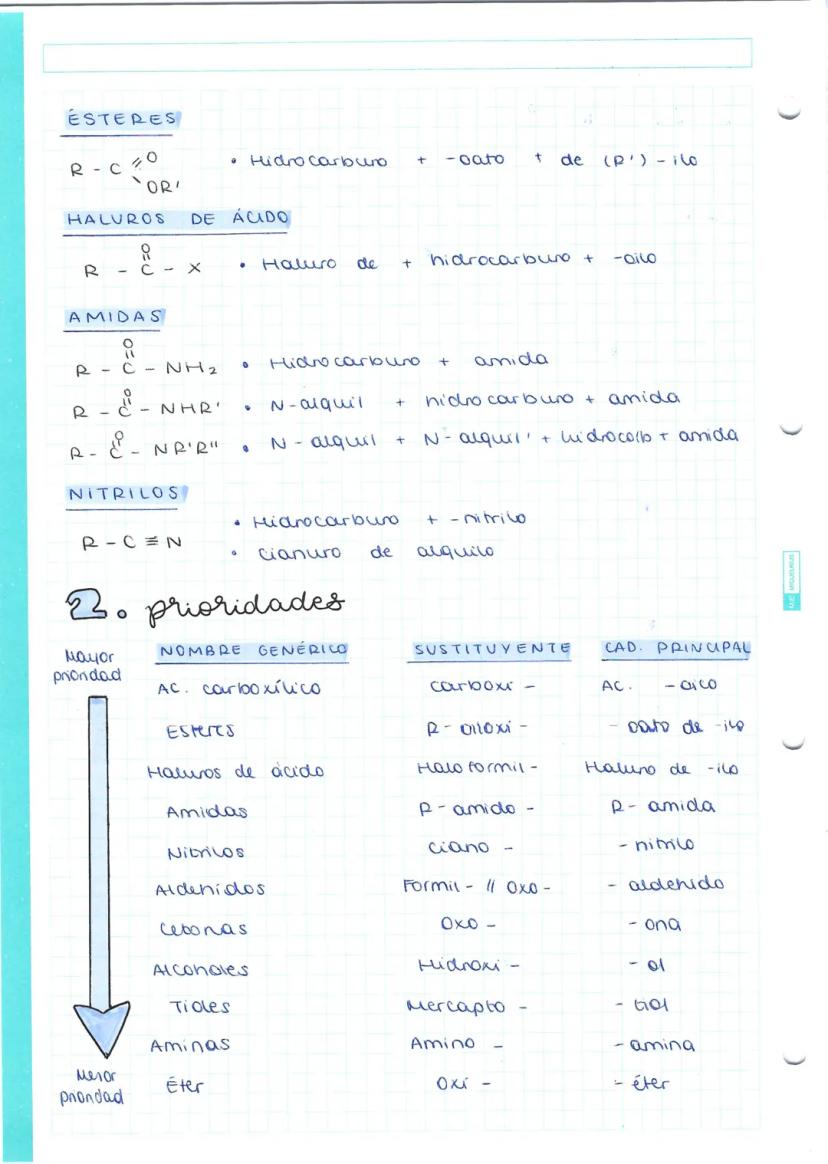 ÉSTERES
R - C = O
OR'
• Hidrocarburo + -oato + de (R') - ilo
HALUROS DE ÁCIDO
O
R - C - X • Haluro de + hidrocarburo + -oilo
AMIDAS
O
R - C - NH2 • Hidrocarburo + amida
O
R - C - NHR' • N-alquil + hidrocarburo + amida
O
R - C - NR'R" • N-alquil + N-alquil' + hidrocarb + amida
NITRILOS
R - C ≡ N
• Hidrocarburo + -nitrilo
• cianuro de alquilo
2. prioridades
Mayor prioridad
NOMBRE GENÉRICO SUSTITUYENTE CAD. PRINCIPAL
AC. carboxílico carboxi - AC. -oico
Esteres R-oiloxi - - oato de -ilo
Haluros de ácido Haloformil - Haluro de -ilo
Amidas R-amido - R-amida
Nitrilos ciano - - nitrilo
Aldehidos Formil - // oxo - - aldehido
Cetonas oxo - - ona
Alcoholes Hidroxi - - ol
Tioles Mercapto - - tiol
Aminas Amino - - amina
Éter oxi - - éter
Menor prioridad
MIQUELRIUS